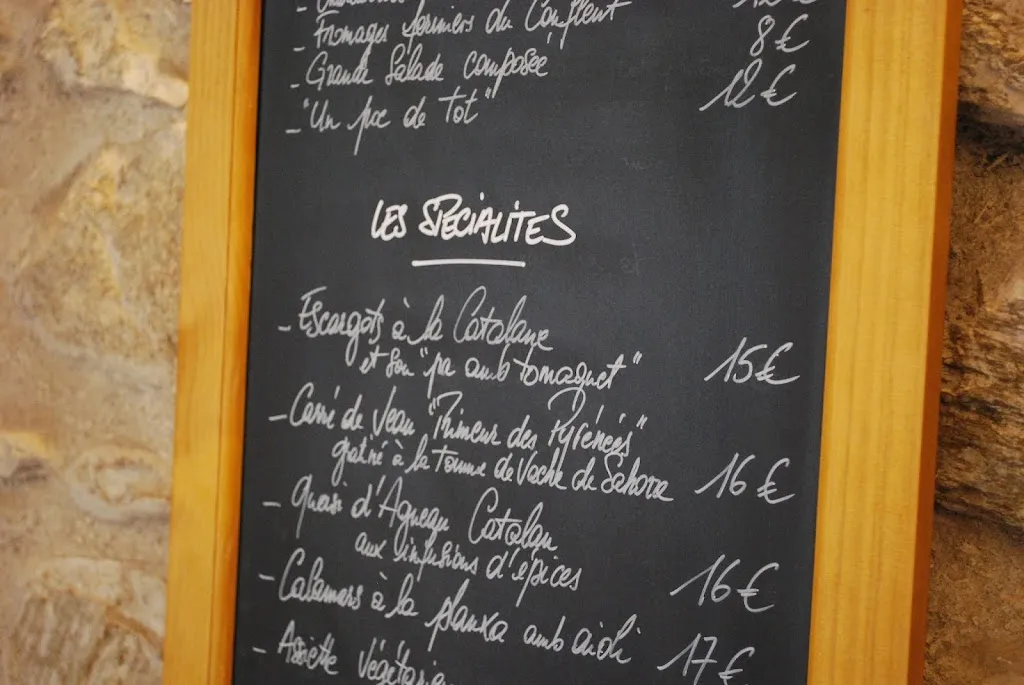 - Fromages fermiers du Conflent 8€
- Grande Salade composée 12€
- "Un poc de tot"
LES SPECIALITES
- Escargots à la Catalane
et son "pa amb tomaquet" 15€
- Carré de Veau "Primeur des Pyrénées"
gratiné à la Tomme de Vache de Sahorre 16€
- Quasi d'Agneau Catalan
aux infusions d'épices 16€
- Calamars à la planxa amb aioli 17€
- Assiette